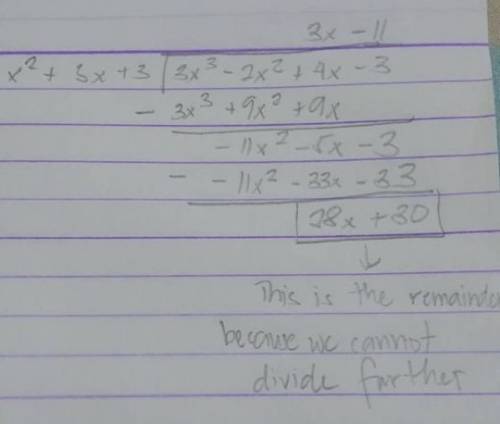 3x - 11
x² + 3x + 3 | 3x³ - 2x² + 4x - 3
- 3x³ + 9x² + 9x
- 11x² - 5x - 3
- - 11x² - 33x - 33
28x + 30
↓
This is the remainder
because we cannot
divide farther